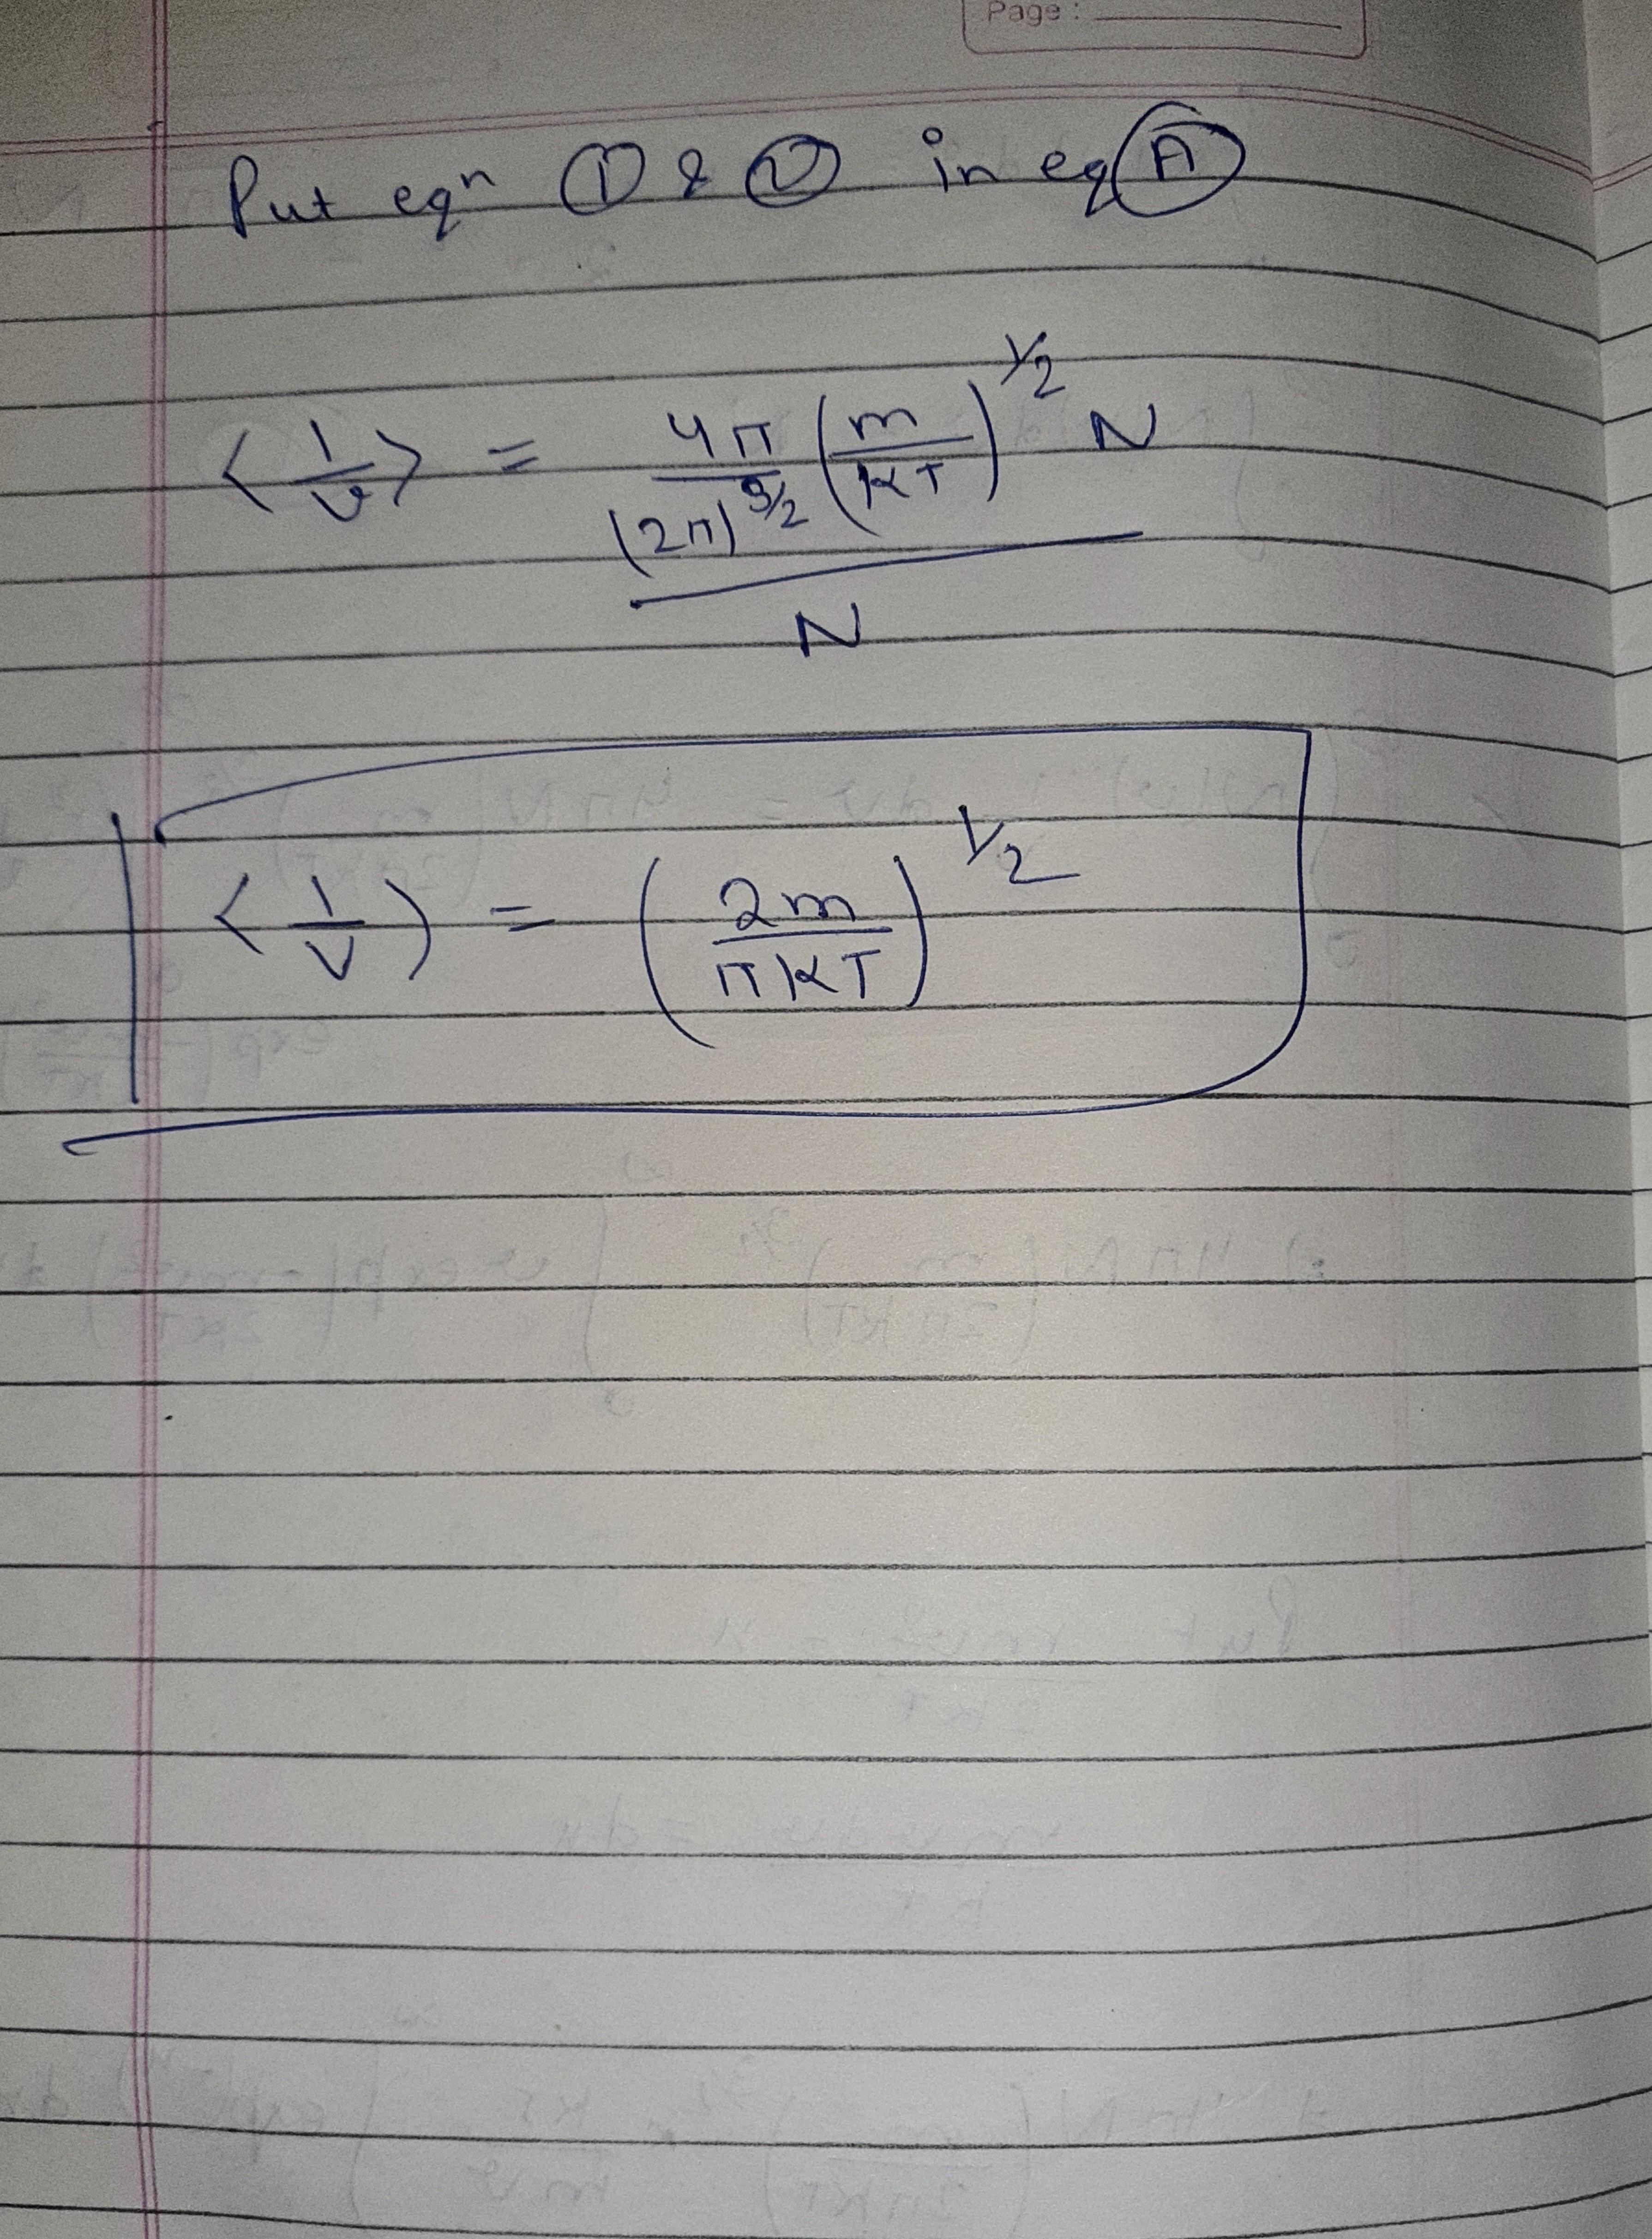 Page :
Put eqⁿ ① & ② in eq Ⓐ
⟨1/v⟩ = 4π/(2π)^3/2 (m/KT)^1/2 N / N
⟨1/v) = (2m/πKT)^1/2